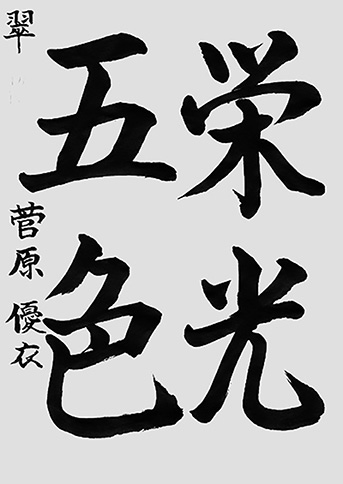 栄光
五色
翠
菅原優衣